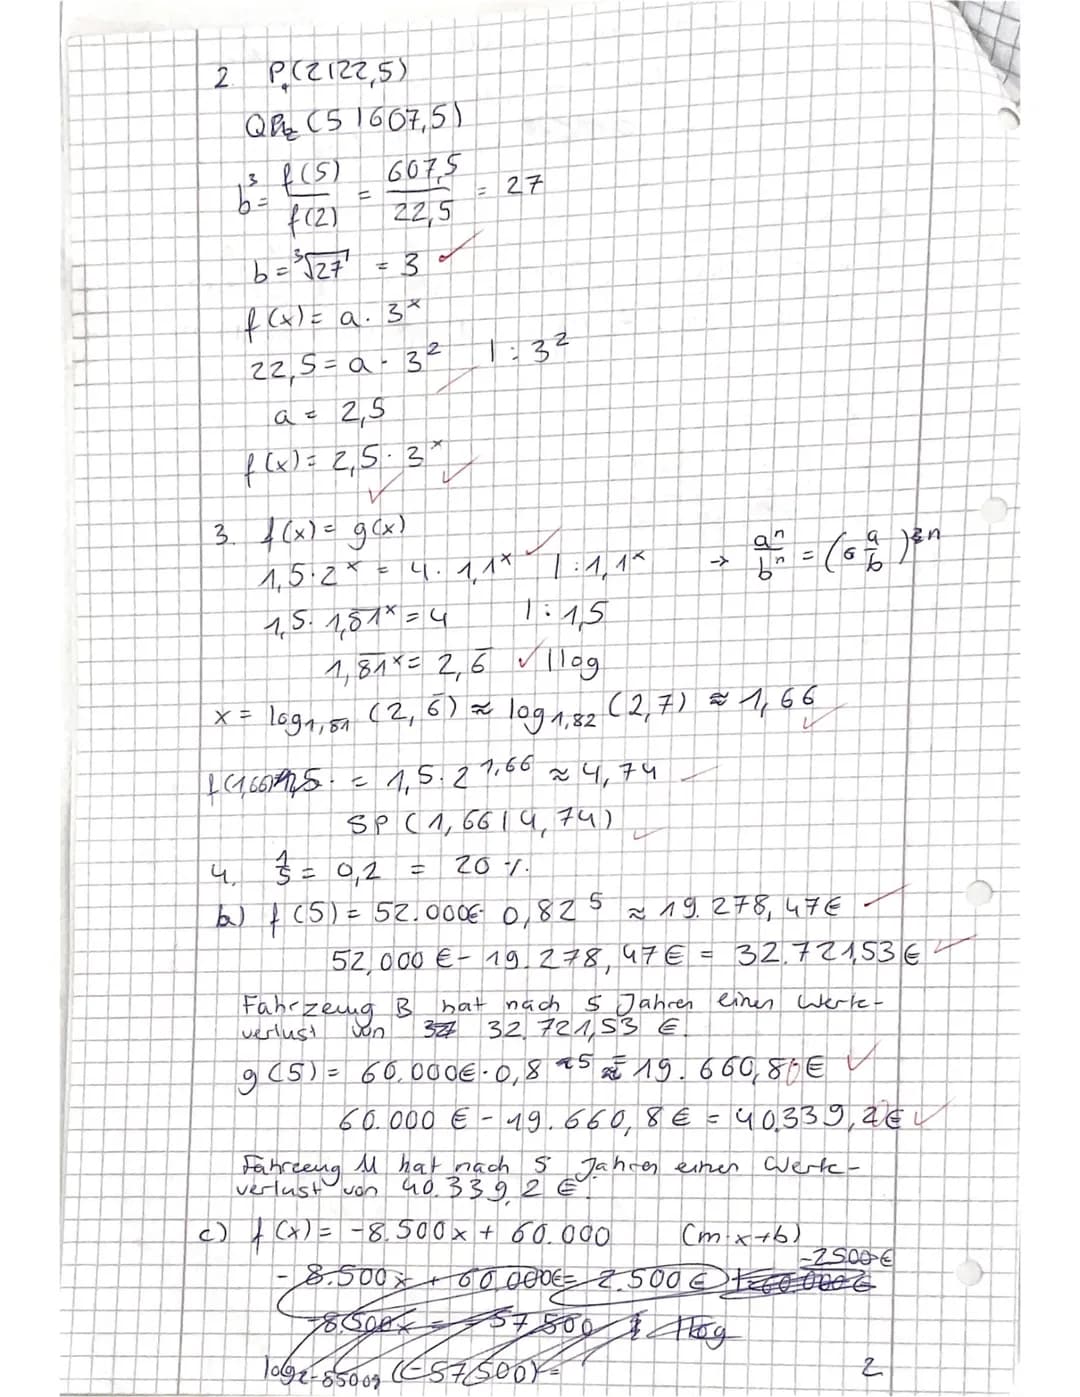 2. P₁(2|22,5)
Q P₂ (5|607,5)
b³ = f(5)/f(2) = 607,5/22,5 = 27
b = ³√27 = 3 ✓
f(x) = a · 3ˣ
22,5 = a · 3² | : 3²
a = 2,5
f(x) = 2,5 · 3ˣ
3. f(x) = g(x)
1,5 · 2ˣ = 4 · 1,1ˣ | : 1,1ˣ → aⁿ/bⁿ = (a/b)ⁿ
1,5 · 1,8̅1̅ˣ = 4 | : 1,5
1,8̅1̅ˣ = 2,6̅ ✓ | log
x = log₁,₈₁ (2,6̅) ≈ log₁,₈₂ (2,7) ≈ 1,66
f(1,66) = 1,5 · 2^1,66 ≈ 4,74
SP (1,66|4,74)
4. 1/5 = 0,2 = 20 %
b) f(5) = 52.000€ · 0,82⁵ ≈ 19.278,47€
52,000 € - 19.278,47€ = 32.721,53€
Fahrzeug B hat nach 5 Jahren einen Werk-
verlust von 32.721,53 €.
g(5) = 60.000€ · 0,8⁵ = 19.660,80€
60.000 € - 19.660,8€ = 40.339,2€
Fahrzeug M hat nach 5 Jahren einen Werk-
verlust von 40.339,2 €.
c) f(x) = -8.500x + 60.000 (m·x+b)
-8.500x + 60.000€ = 2.500€ | -2500€
-8.500x = -57.500 | log
(-57500) =
2